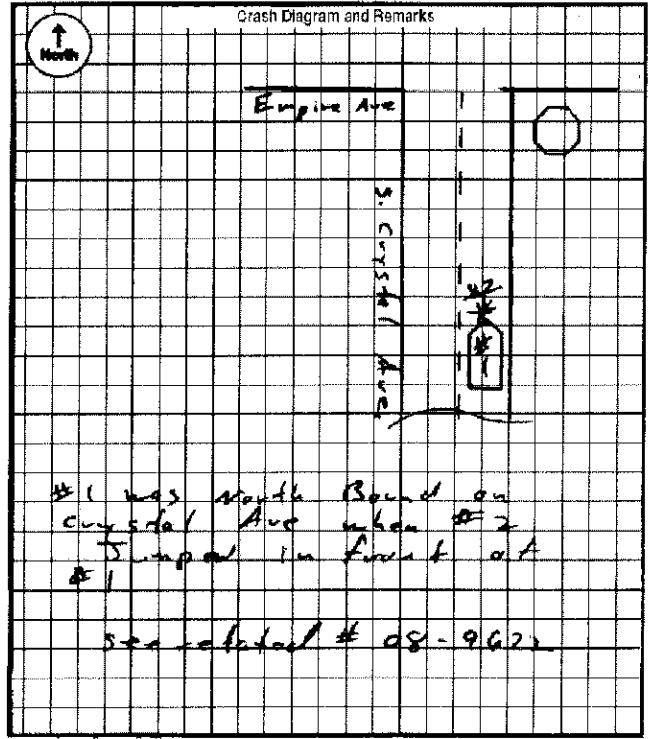 Crash Diagram and Remarks
North
Empire Ave
S. Crystal Ave
#2
#1
#1 was North Bound on
Crystal Ave when #2
Jumped in front of
#1
See related # 08-9622